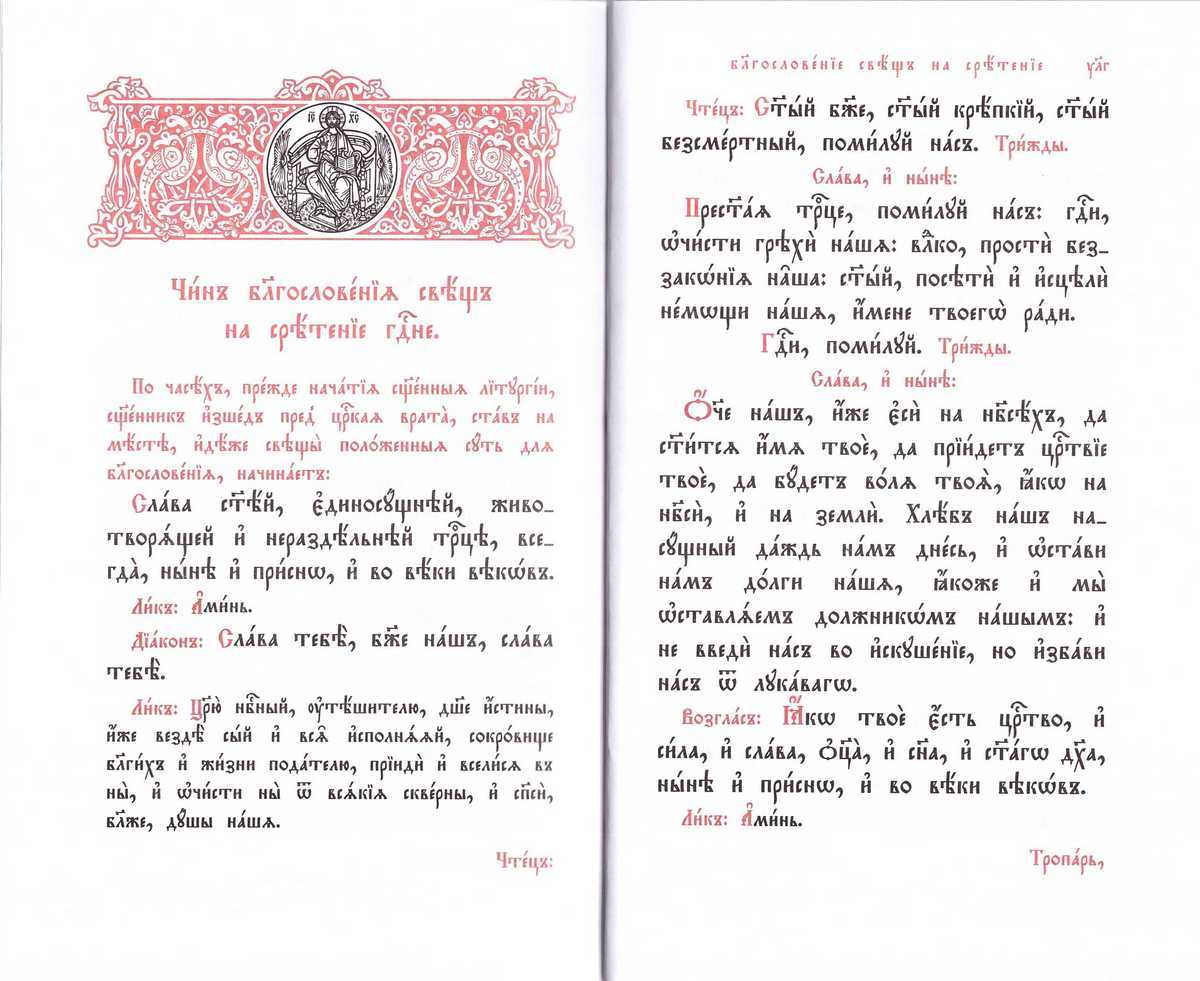 Чи́нъ бл҃гослове́нїѧ свѣ́щъ
на срѣ́тенїе гдⷭ҇не.
По часѣ́хъ, пре́жде нача́тїѧ сщ҃е́нныѧ лїтꙋргі́и,
сщ҃е́нникъ и҆зше́дъ пред̾ црⷭ҇каѧ врата̀, ста́въ на
мѣ́стѣ, и҆дѣ́же свѣщы̀ положе́нныѧ сꙋ́ть для
бл҃гослове́нїѧ, начина́етъ:
Сла́ва ст҃ѣ́й, є҆диносꙋ́щнѣй, живо-
творѧ́щей и҆ нераздѣ́льнѣй трⷪ҇цѣ, все-
гда̀, ны́нѣ и҆ при́снѡ, и҆ во вѣ́ки вѣкѡ́въ.
Ли́къ: А҆ми́нь.
Дїа́конъ: Сла́ва тебѣ̀, бж҃е на́шъ, сла́ва
тебѣ̀.
Ли́къ: Цр҃ю̀ нбⷭ҇ный, ᲂу҆тѣ́шителю, дш҃е и҆́стины,
и҆́же вездѣ̀ сы́й и҆ всѧ̑ и҆сполнѧ́ѧй, сокро́вище
бл҃ги́хъ и҆ жи́зни пода́телю, прїидѝ и҆ всели́сѧ въ
ны̀, и҆ ѡ҆чи́сти ны̀ ѿ всѧ́кїѧ скве́рны, и҆ сп҃сѝ,
бл҃же, дꙋ́шы на́шѧ.
Чте́цъ:
бл҃гослове́нїе свѣ́щъ на срѣ́тенїе ул҃г
Чте́цъ: Ст҃ы́й бж҃е, ст҃ы́й крѣ́пкїй, ст҃ы́й
безсме́ртный, поми́лꙋй на́съ. Три́жды.
Сла́ва, и҆ ны́нѣ:
Прест҃а́ѧ трⷪ҇це, поми́лꙋй на́съ: гдⷭ҇и,
ѡ҆чи́сти грѣхѝ на́шѧ: влⷣко, простѝ без-
закѡ́нїѧ на̑ша: ст҃ы́й, посѣтѝ и҆ и҆сцѣлѝ
не́мѡщи на́шѧ, и҆́мене твоегѡ̀ ра́ди.
Гдⷭ҇и, поми́лꙋй. Три́жды.
Сла́ва, и҆ ны́нѣ:
Ѻ҆́ч҃е на́шъ, и҆́же є҆сѝ на нб҃сѣ́хъ, да
ст҃и́тсѧ и҆́мѧ твоѐ, да прїи́детъ црⷭ҇твїе
твоѐ, да бꙋ́детъ во́лѧ твоѧ̀, ꙗ҆́кѡ на
нб҃сѝ, и҆ на землѝ. Хлѣ́бъ на́шъ на-
сꙋ́щный да́ждь на́мъ дне́сь, и҆ ѡ҆ста́ви
на́мъ до́лги на́шѧ, ꙗ҆́коже и҆ мы̀
ѡ҆ставлѧ́емъ должникѡ́мъ на́шымъ: и҆
не введѝ на́съ во и҆скꙋше́нїе, но и҆зба́ви
на́съ ѿ лꙋка́вагѡ.
Возгла́съ: Ꙗ҆́кѡ твоѐ є҆́сть црⷭ҇тво, и҆
си́ла, и҆ сла́ва, ѻ҆ц҃а̀, и҆ сн҃а, и҆ ст҃а́гѡ дх҃а,
ны́нѣ и҆ при́снѡ, и҆ во вѣ́ки вѣкѡ́въ.
Ли́къ: А҆ми́нь.
Тропа́рь,